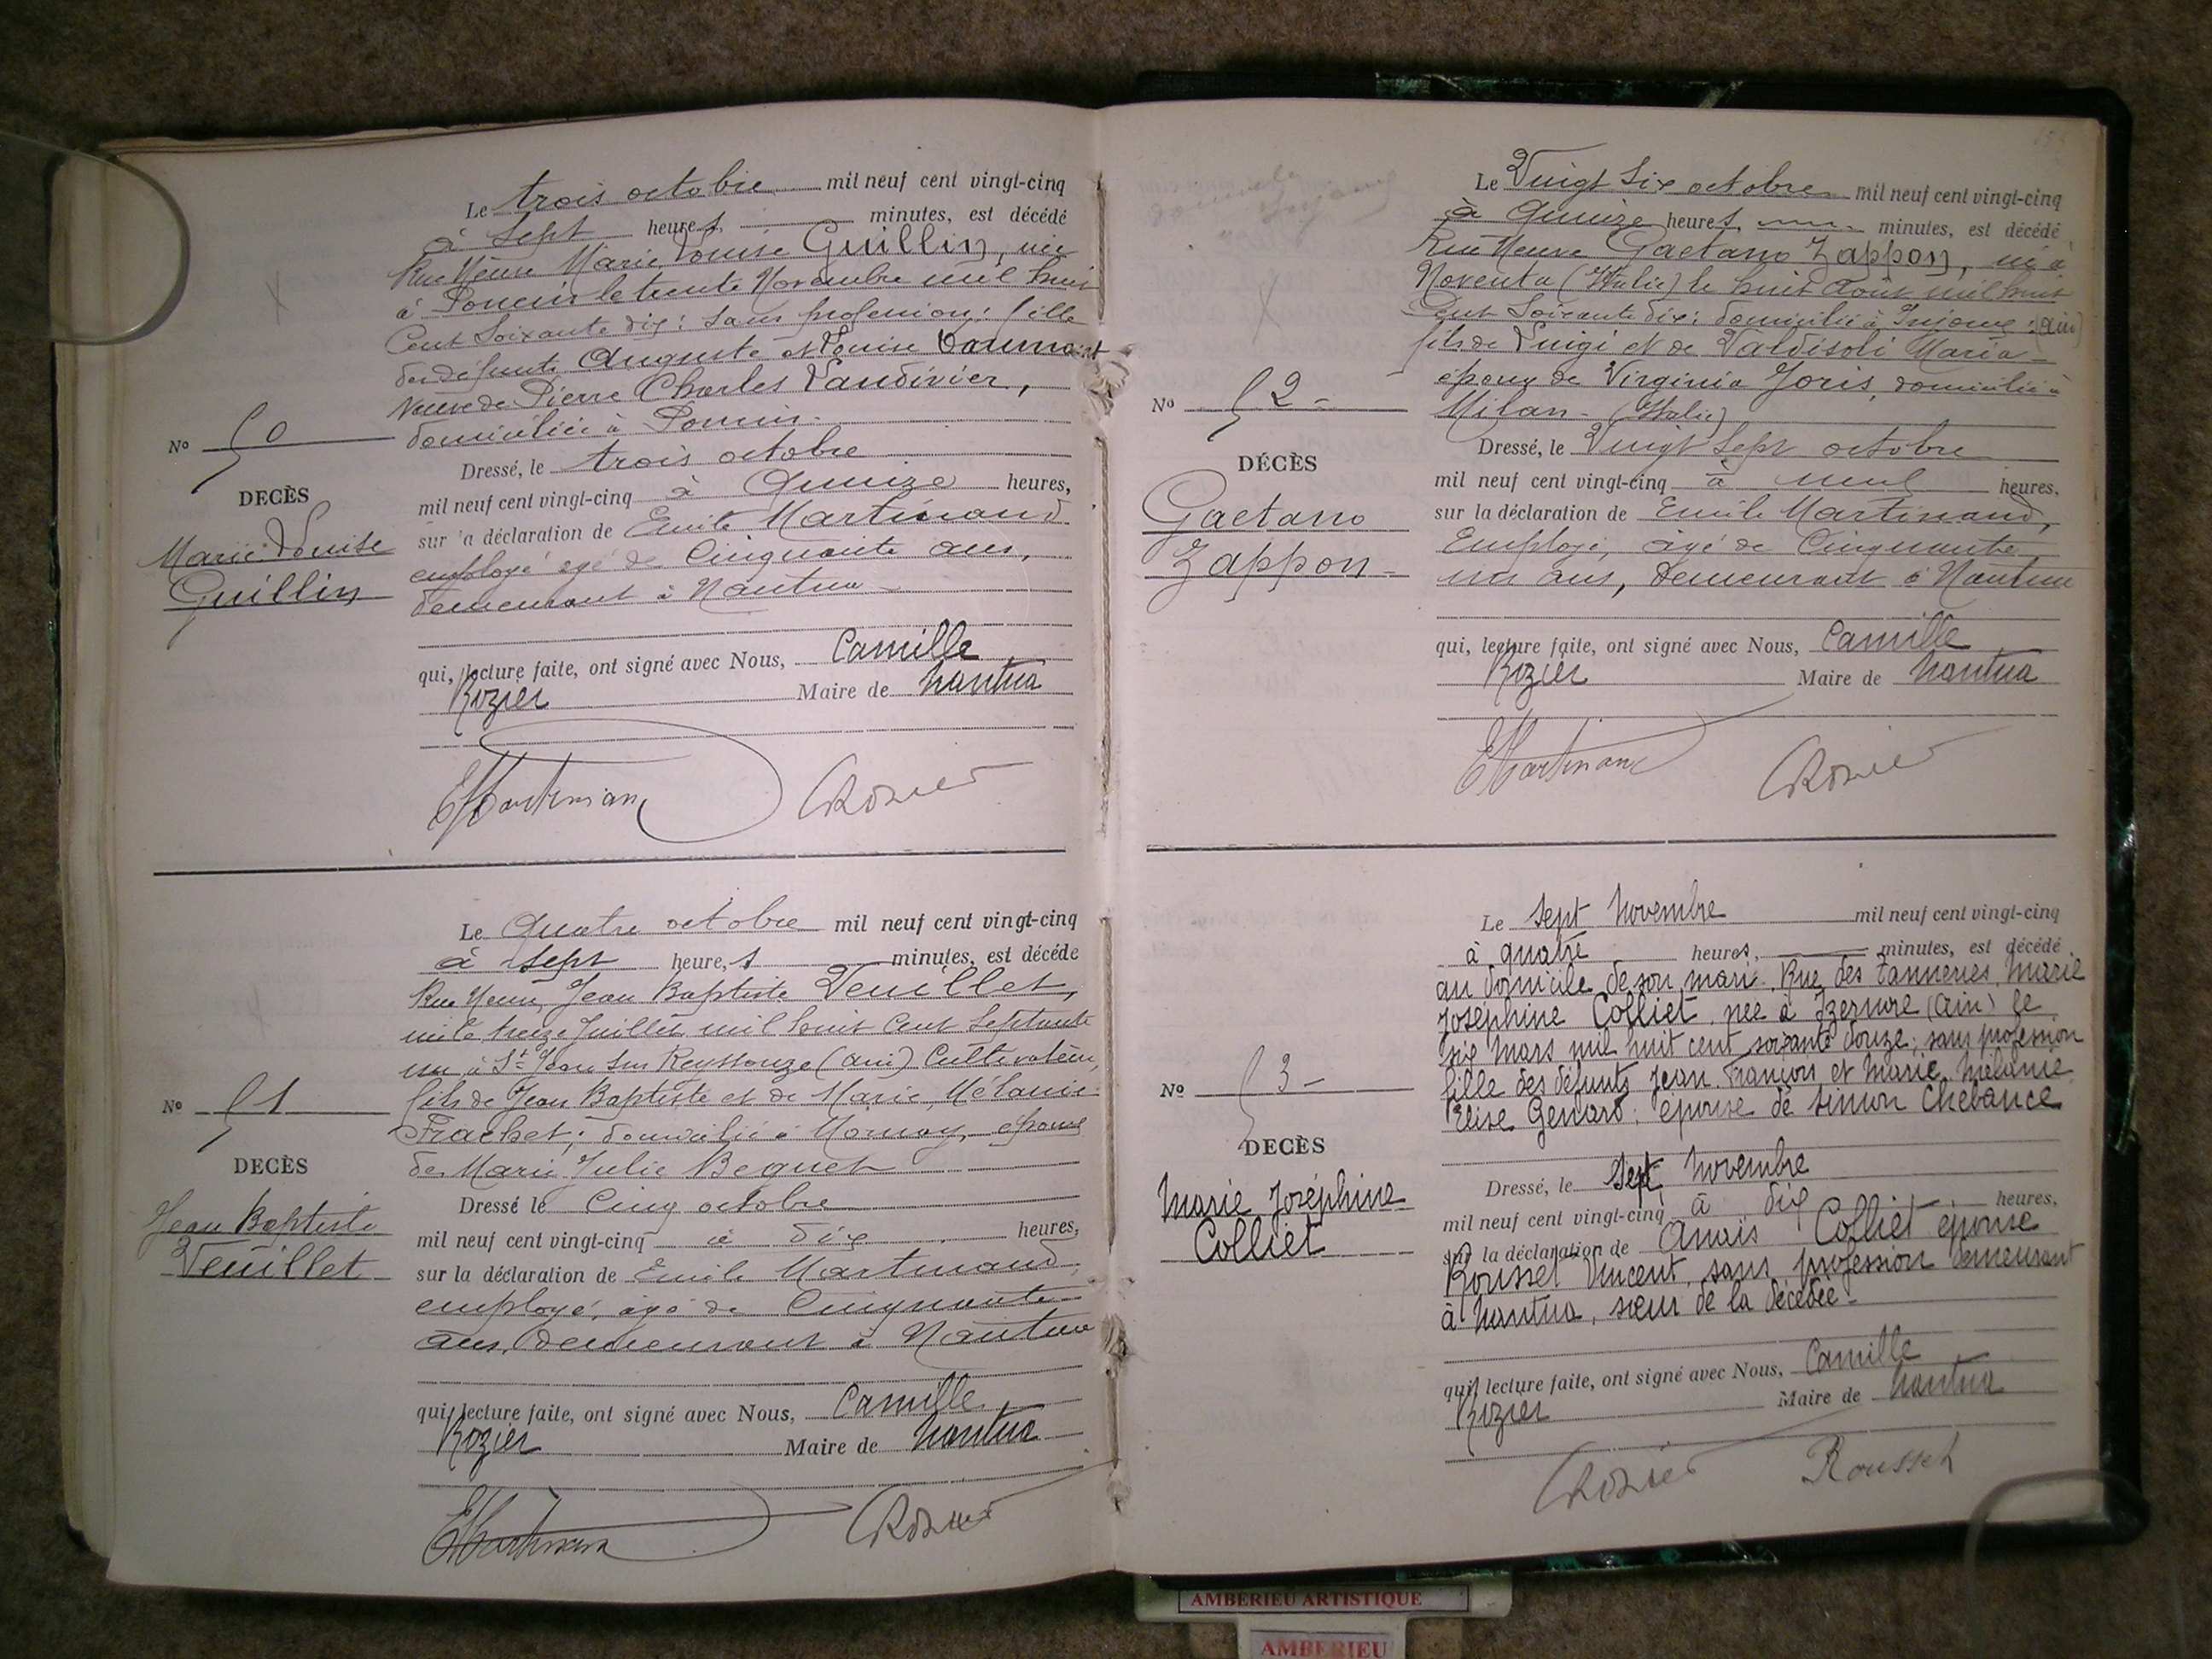 Le trois octobre mil neuf cent vingt-cinq
à sept heures, minutes, est décédé
Rue Neuve Marie Louise Guillin, née
à Poncin le trente Novembre mil huit
Cent Soixante dix; sans profession; fille
des défunts Auguste et Louise
Veuve de Pierre Charles Vaudivier,
domiciliée à Poncin.
No 50
DECÈS
Marie Louise
Guillin
Dressé, le trois octobre
mil neuf cent vingt-cinq à Quinze heures,
sur la déclaration de Emile Martinand
employé agé de Cinquante ans,
demeurant à Nantua
qui, lecture faite, ont signé avec Nous, Camille
Rozier Maire de Nantua
EMartinand CRozier
Le Quatre octobre mil neuf cent vingt-cinq
à sept heure,s minutes, est décédé
Rue Neuve, Jean Baptiste Veuillet,
né le treize Juillet mil huit Cent Septante
un à St Jean sur Reyssouze (ain) Cultivateur,
fils de Jean Baptiste et de Marie, Mélanie
Frachet; domicilié à Mornay, époux
de Marie Julie Beguet
No 51
DECÈS
Jean Baptiste
Veuillet
Dressé le Cinq octobre
mil neuf cent vingt-cinq à dix heures,
sur la déclaration de Emile Martinand,
employé, agé de Cinquante
ans, demeurant à Nantua
qui, lecture faite, ont signé avec Nous, Camille
Rozier Maire de Nantua
EMartinand CRozier
Le Vingt Six octobre mil neuf cent vingt-cinq
à Quinze heures, minutes, est décédé
Rue Neuve Gaetano Zappon, né à
Noventa (Italie) le huit Août mil huit
Cent Soixante dix; domicilié à Injoux (ain)
fils de Luigi et de Valdisoli Maria
époux de Virginia Joris, domiciliée à
Milan - (Italie)
No 52 -
DÉCÈS
Gaetano
Zappon -
Dressé, le Vingt Sept octobre
mil neuf cent vingt-cinq à neuf heures.
sur la déclaration de Emile Martinand,
Employé, âgé de Cinquante
un ans, demeurant à Nantua
qui, lecture faite, ont signé avec Nous, Camille
Rozier Maire de Nantua
EMartinand CRozier
Le Sept Novembre mil neuf cent vingt-cinq
à quatre heures, minutes, est décédé
au domicile de son mari, Rue des tanneries, Marie
Joséphine Colliet, née à Izernore (Ain) le
six Mars mil huit cent soixante douze; sans profession
fille des défunts Jean François et Marie Mélanie
Elise Genard; épouse de Simon Chebance
No 53 -
DECÈS
Marie Joséphine
Colliet
Dressé, le Sept Novembre
mil neuf cent vingt-cinq à dix heures.
sur la déclaration de Anais Colliet épouse
Rousset Vincent, sans profession demeurant
à Nantua, sœur de la décédée -
qui, lecture faite, ont signé avec Nous, Camille
Rozier Maire de Nantua
CRozier Rousset
AMBERIEU ARTISTIQUE
AMBERIEU